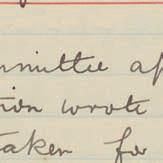 mmittee ap
tion wrote
taken for